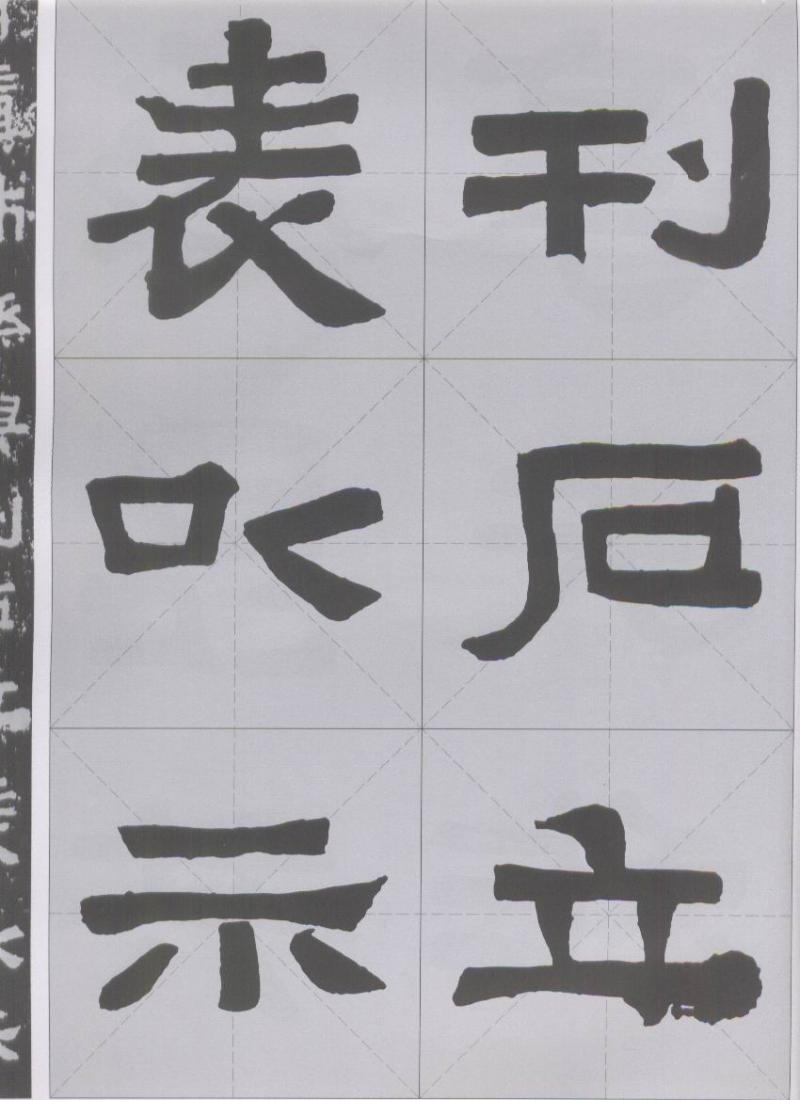 刊石立
表以示